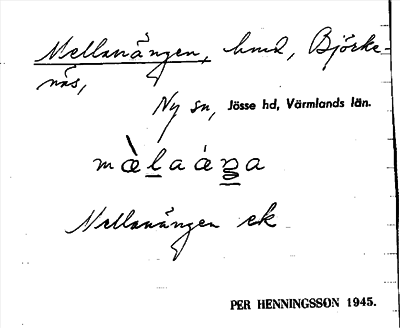 Mellanängen, hmd, Björke-
näs,
Ny sn, Jösse hd, Värmlands län.
Mellanängen ek
PER HENNINGSSON 1945.